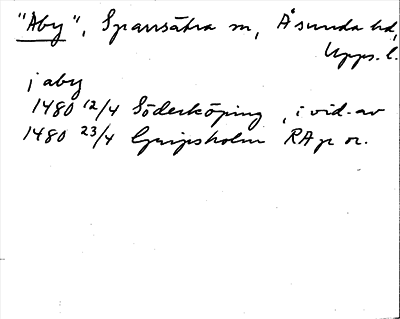 "Åby", Sparrsätra sn, Åsunda hd,
Upps. l.
j aby
1480 12/4 Söderköping, i vid. av
1480 23/4 Gripsholm RAp or.